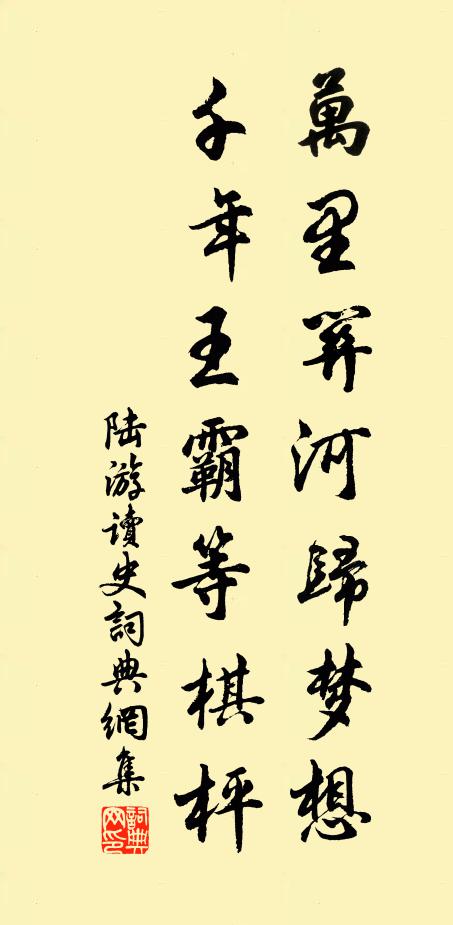 萬里關河歸梦想
千年王霸等棋枰
陆游读史詞典網集
詞典网印